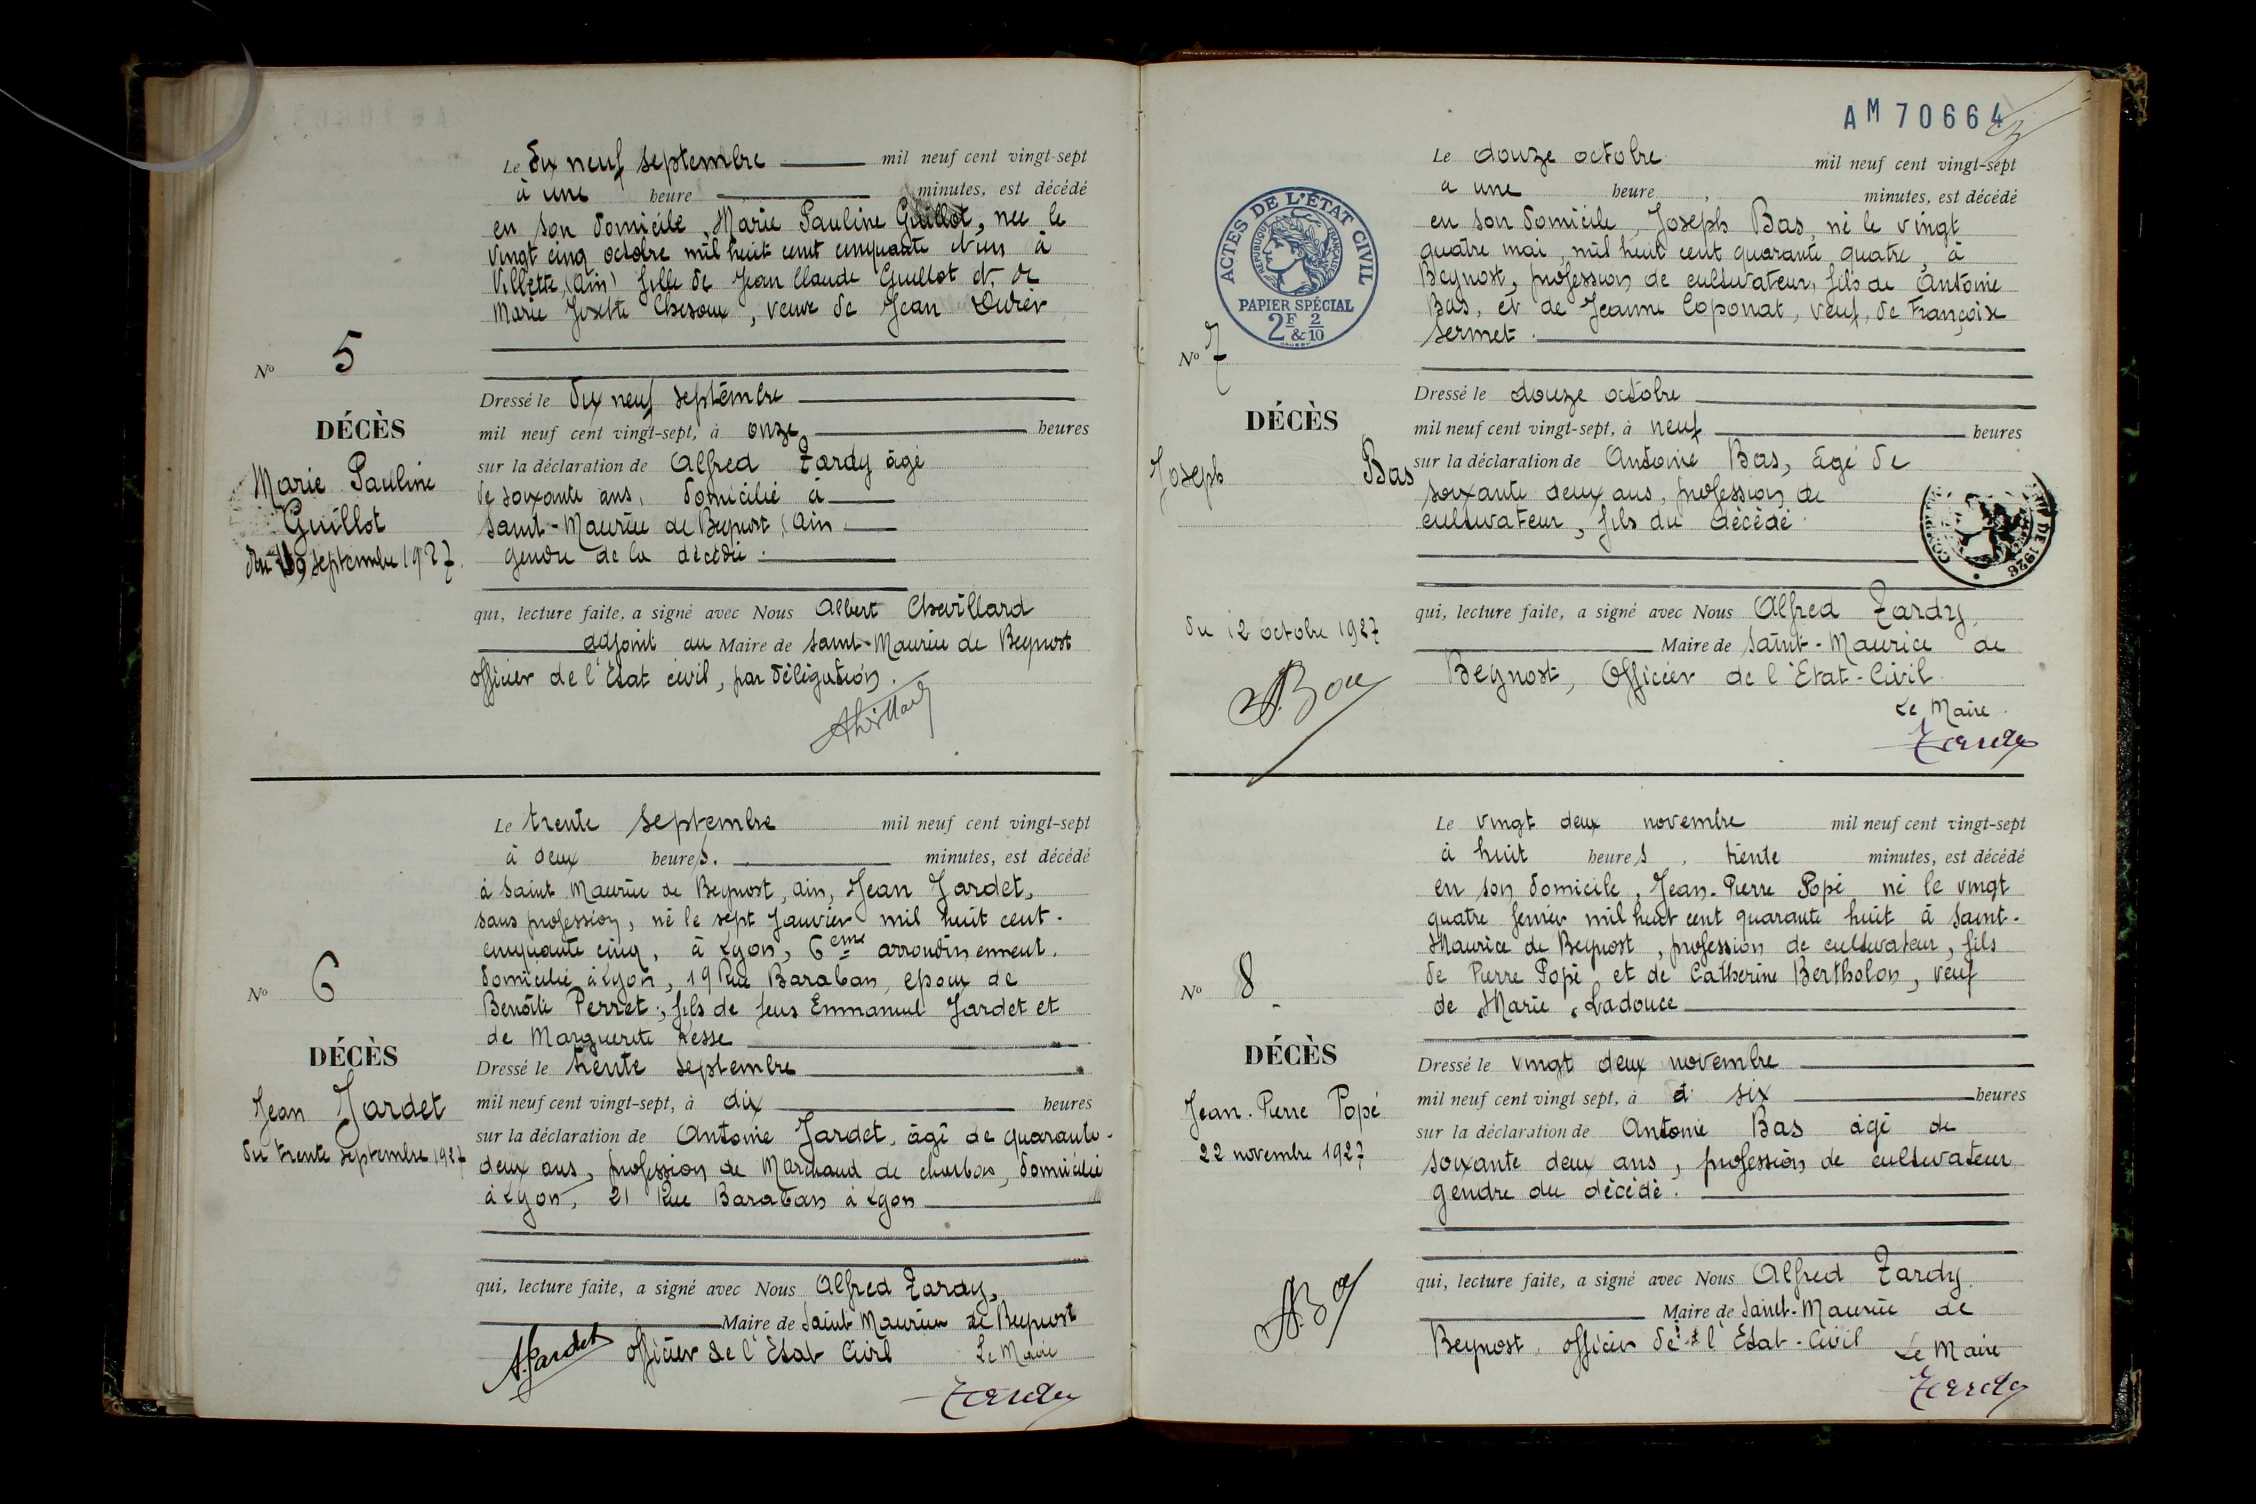 Le dix neuf septembre mil neuf cent vingt-sept
à une heure minutes, est décédé
en son domicile, Marie Pauline Guillot, née le
vingt cinq octobre mil huit cent cinquante et un à
Villette (Ain) fille de Jean Claude Guillot et de
Marie Josette, veuve de Jean
No 5
DÉCÈS
Marie Pauline
Guillot
du 19 septembre 1927.
Dressé le dix neuf septembre
mil neuf cent vingt-sept, à onze heures
sur la déclaration de Alfred Tardy âgé
de soixante ans, domicilié à
Saint-Maurice de Beynost, Ain
gendre de la décédée.
qui, lecture faite, a signé avec Nous Albert Chevillard
adjoint au Maire de Saint-Maurice de Beynost
officier de l'Etat civil, par délégation.
Le trente septembre mil neuf cent vingt-sept
à deux heures. minutes, est décédé
à Saint Maurice de Beynost, ain, Jean Jardet,
sans profession, né le sept Janvier mil huit cent.
cinquante cinq, à Lyon, 6eme arrondissement.
domicilié à Lyon, 19 Rue Baraban, epoux de
Benoîte Perret, fils de feus Emmanuel Jardet et
de Marguerite
No 6
DÉCÈS
Jean Jardet
du trente septembre 1927
Dressé le trente septembre
mil neuf cent vingt-sept, à dix heures
sur la déclaration de Antoine Jardet, âgé de quarante-
deux ans, profession de Marchand de charbons, domicilié
à Lyon, 21 Rue Baraban à Lyon
qui, lecture faite, a signé avec Nous Alfred Tardy,
Maire de Saint Maurice de Beynost
A. Jardet officier de l'Etat Civil Le Maire
Tardy
AM 70664
Le douze octobre mil neuf cent vingt-sept
a une heure, minutes, est décédé
en son domicile, Joseph Bas, né le vingt
quatre mai, mil huit cent quarante quatre, à
Beynost, profession de cultivateur, fils de Antoine
Bas, et de Jeanne Coponat, veuf, de Françoise
Sermet.
ACTES DE L'ÉTAT CIVIL
RÉPUBLIQUE FRANÇAISE
PAPIER SPÉCIAL
2F & 2/10
No 7
DÉCÈS
Joseph Bas
du 12 octobre 1927
Dressé le douze octobre
mil neuf cent vingt-sept, à neuf heures
sur la déclaration de Antoine Bas, âgé de
soixante deux ans, profession de
cultivateur, fils du décédé.
DE 1926
qui, lecture faite, a signé avec Nous Alfred Tardy,
Maire de Saint-Maurice de
Beynost, Officier de l'Etat-Civil.
Le Maire.
Tardy
A. Bas
Le vingt deux novembre mil neuf cent vingt-sept
à huit heures, trente minutes, est décédé
en son domicile, Jean-Pierre Popé né le vingt
quatre fevrier mil huit cent quarante huit à Saint-
Maurice de Beynost, profession de cultivateur, fils
de Pierre Popé et de Catherine Bertholon, veuf
de Marie Ladouce
No 8
DÉCÈS
Jean-Pierre Popé
22 novembre 1927
Dressé le vingt deux novembre
mil neuf cent vingt sept, à dix heures
sur la déclaration de Antonie Bas âgé de
soixante deux ans, profession de cultivateur
gendre du décédé.
qui, lecture faite, a signé avec Nous Alfred Tardy.
Maire de Saint-Maurice de
Beynost, officier de l'Etat-Civil Le Maire
A. Bas
Tardy